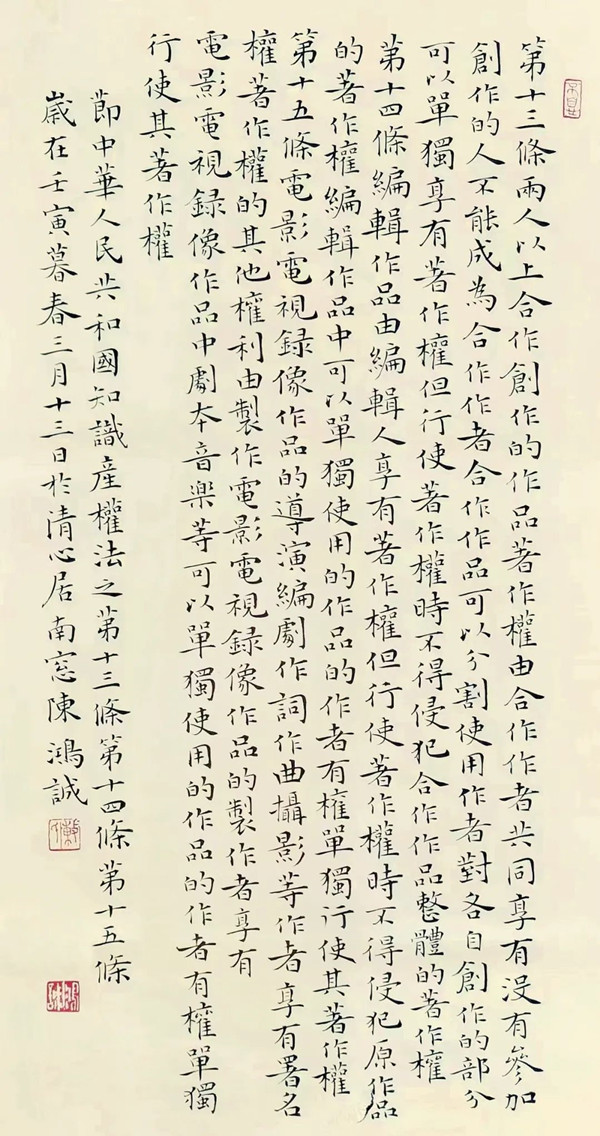 第十三條兩人以上合作創作的作品著作權由合作作者共同享有沒有參加
創作的人不能成為合作作者合作作品可以分割使用作者對各自創作的部分
可以單獨享有著作權但行使著作權時不得侵犯合作作品整體的著作權
第十四條編輯作品由編輯人享有著作權但行使著作權時不得侵犯原作品
的著作權編輯作品中可以單獨使用的作品的作者有權單獨行使其著作權
第十五條電影電視録像作品的導演編劇作詞作曲攝影等作者享有署名
權著作權的其他權利由製作電影電視録像作品的製作者享有
電影電視録像作品中劇本音樂等可以單獨使用的作品的作者有權單獨
行使其著作權
節中華人民共和國知識産權法之第十三條第十四條第十五條
歲在壬寅暮春三月十三日於清心居南窓陳鴻誠